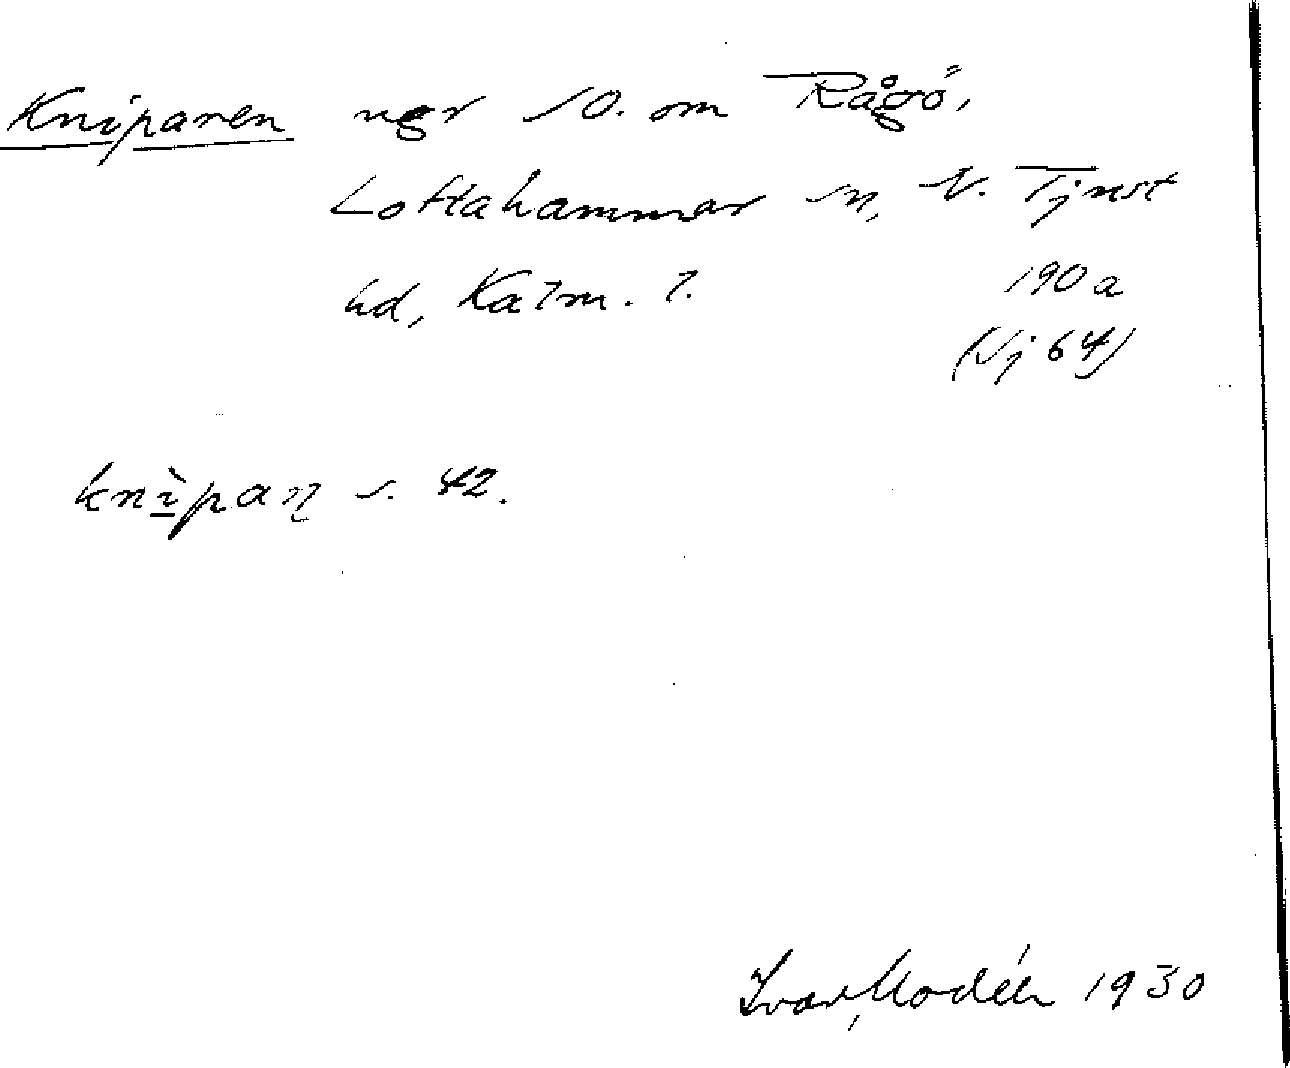 Kniparen ngr SO. om Rågö,
Loftahammar sn, N. Tjust
hd, Kalm. l. 190 a
(Vj 64)
knìpaṇ s. 42.
Ivar Modéer 1930